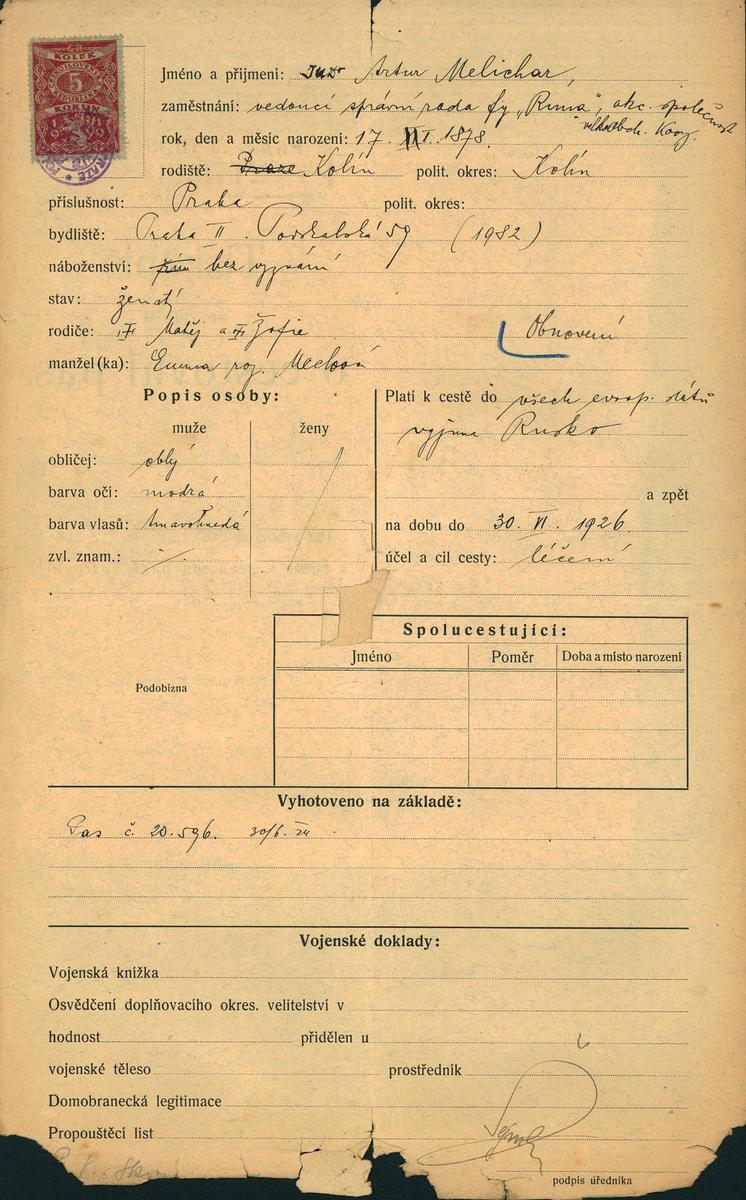 KOLEK
5
KORUN
1919
Jméno a příjmení: JUDr Artur Melichar,
zaměstnání: vedoucí správní rada fy „Runa", akc. společnost
velkoobch.
rok, den a měsíc narození: 17. 1878.
rodiště: Praze Kolín polit. okres: Kolín
příslušnost: Praha polit. okres:
bydliště: Praha II. Podskalská 59 (1982)
náboženství: bez vyznání
stav: ženatý
rodiče: Matěj a Žofie Obnovení
manžel(ka): Emma roz.
Popis osoby:
muže ženy
obličej: oblý
barva očí: modrá
barva vlasů: tmavohnědá
zvl. znam.: /.
Platí k cestě do všech evrop. států
vyjma Rusko
a zpět
na dobu do 30. VI. 1926.
účel a cíl cesty: léčení
Podobizna
Spolucestující:
Jméno Poměr Doba a místo narození
Vyhotoveno na základě:
Pas č. 20.596. 30/6.
Vojenské doklady:
Vojenská knížka
Osvědčení doplňovacího okres. velitelství v
hodnost přidělen u
vojenské těleso prostředník
Domobranecká legitimace
Propouštěcí list
podpis úředníka